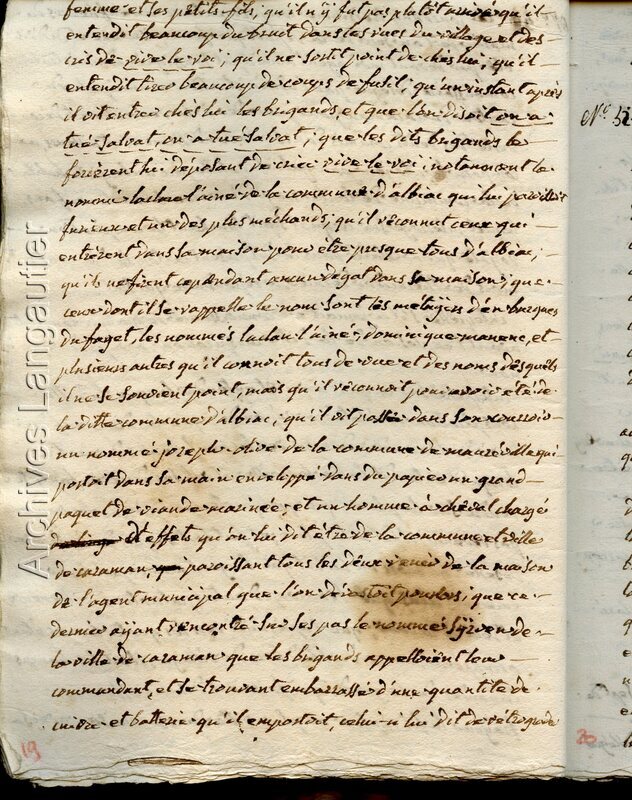 femme et ses petits fils, qu'il n'y fut pas plutôt arrivé qu'il
entendit beaucoup du bruit dans les rues du village et des
cris de vive le roi; qu'il ne sortit point de chés lui, qu'il
entendit tirer beaucoup de coups de fusil; qu'un instant après
il vit entrer chés lui les brigands, et que l'on disoit on a
tué salvat, on a tué salvat; que les dits brigands le
forcèrent lui déposant de crier vive le roi; notamment le
nommé laclau l'ainé de la commune d'albiac qui lui
furieux et un des plus méchands; qu'il réconnut ceux qui
entrèrent dans sa maison pour être presque tous d'albiac;
qu'ils ne firent cependant aucun dégat dans sa maison; que
ceux dont il se rappelle le nom sont les métayers d'en
du faget, les nommés laclau l'ainé, dominique manenc, et
plusieurs autres qu'il connoit tous de vue et des noms desquels
il ne se souvient point, mais qu'il réconnoit pour avoir été de
la ditte commune d'albiac; qu'il vit passer dans son
un nommé joseph olive de la commune de maureville qui
portoit dans sa main enveloppé dans du papier un grand
paquet de viande marinée; et un homme à cheval chargé
d'effets qu'on lui dit être de la commune et ville
de caraman, paroissant tous les deux venir de la maison
de l'agent municipal que l'on dévastoit pour lors; que ce
dernier ayant rencontré sur ses pas le nommé Syrven de
la ville de caraman que les brigands appelloient leur
commandant, et se trouvant embarrassé d'une quantité de
cuivre et batterie qu'il emportoit, celui-ci lui dit de rétrograder
N.º 52
19
20
Archives Langautier